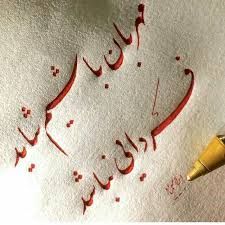 مهربان باشیم شاید
فردایی نباشد